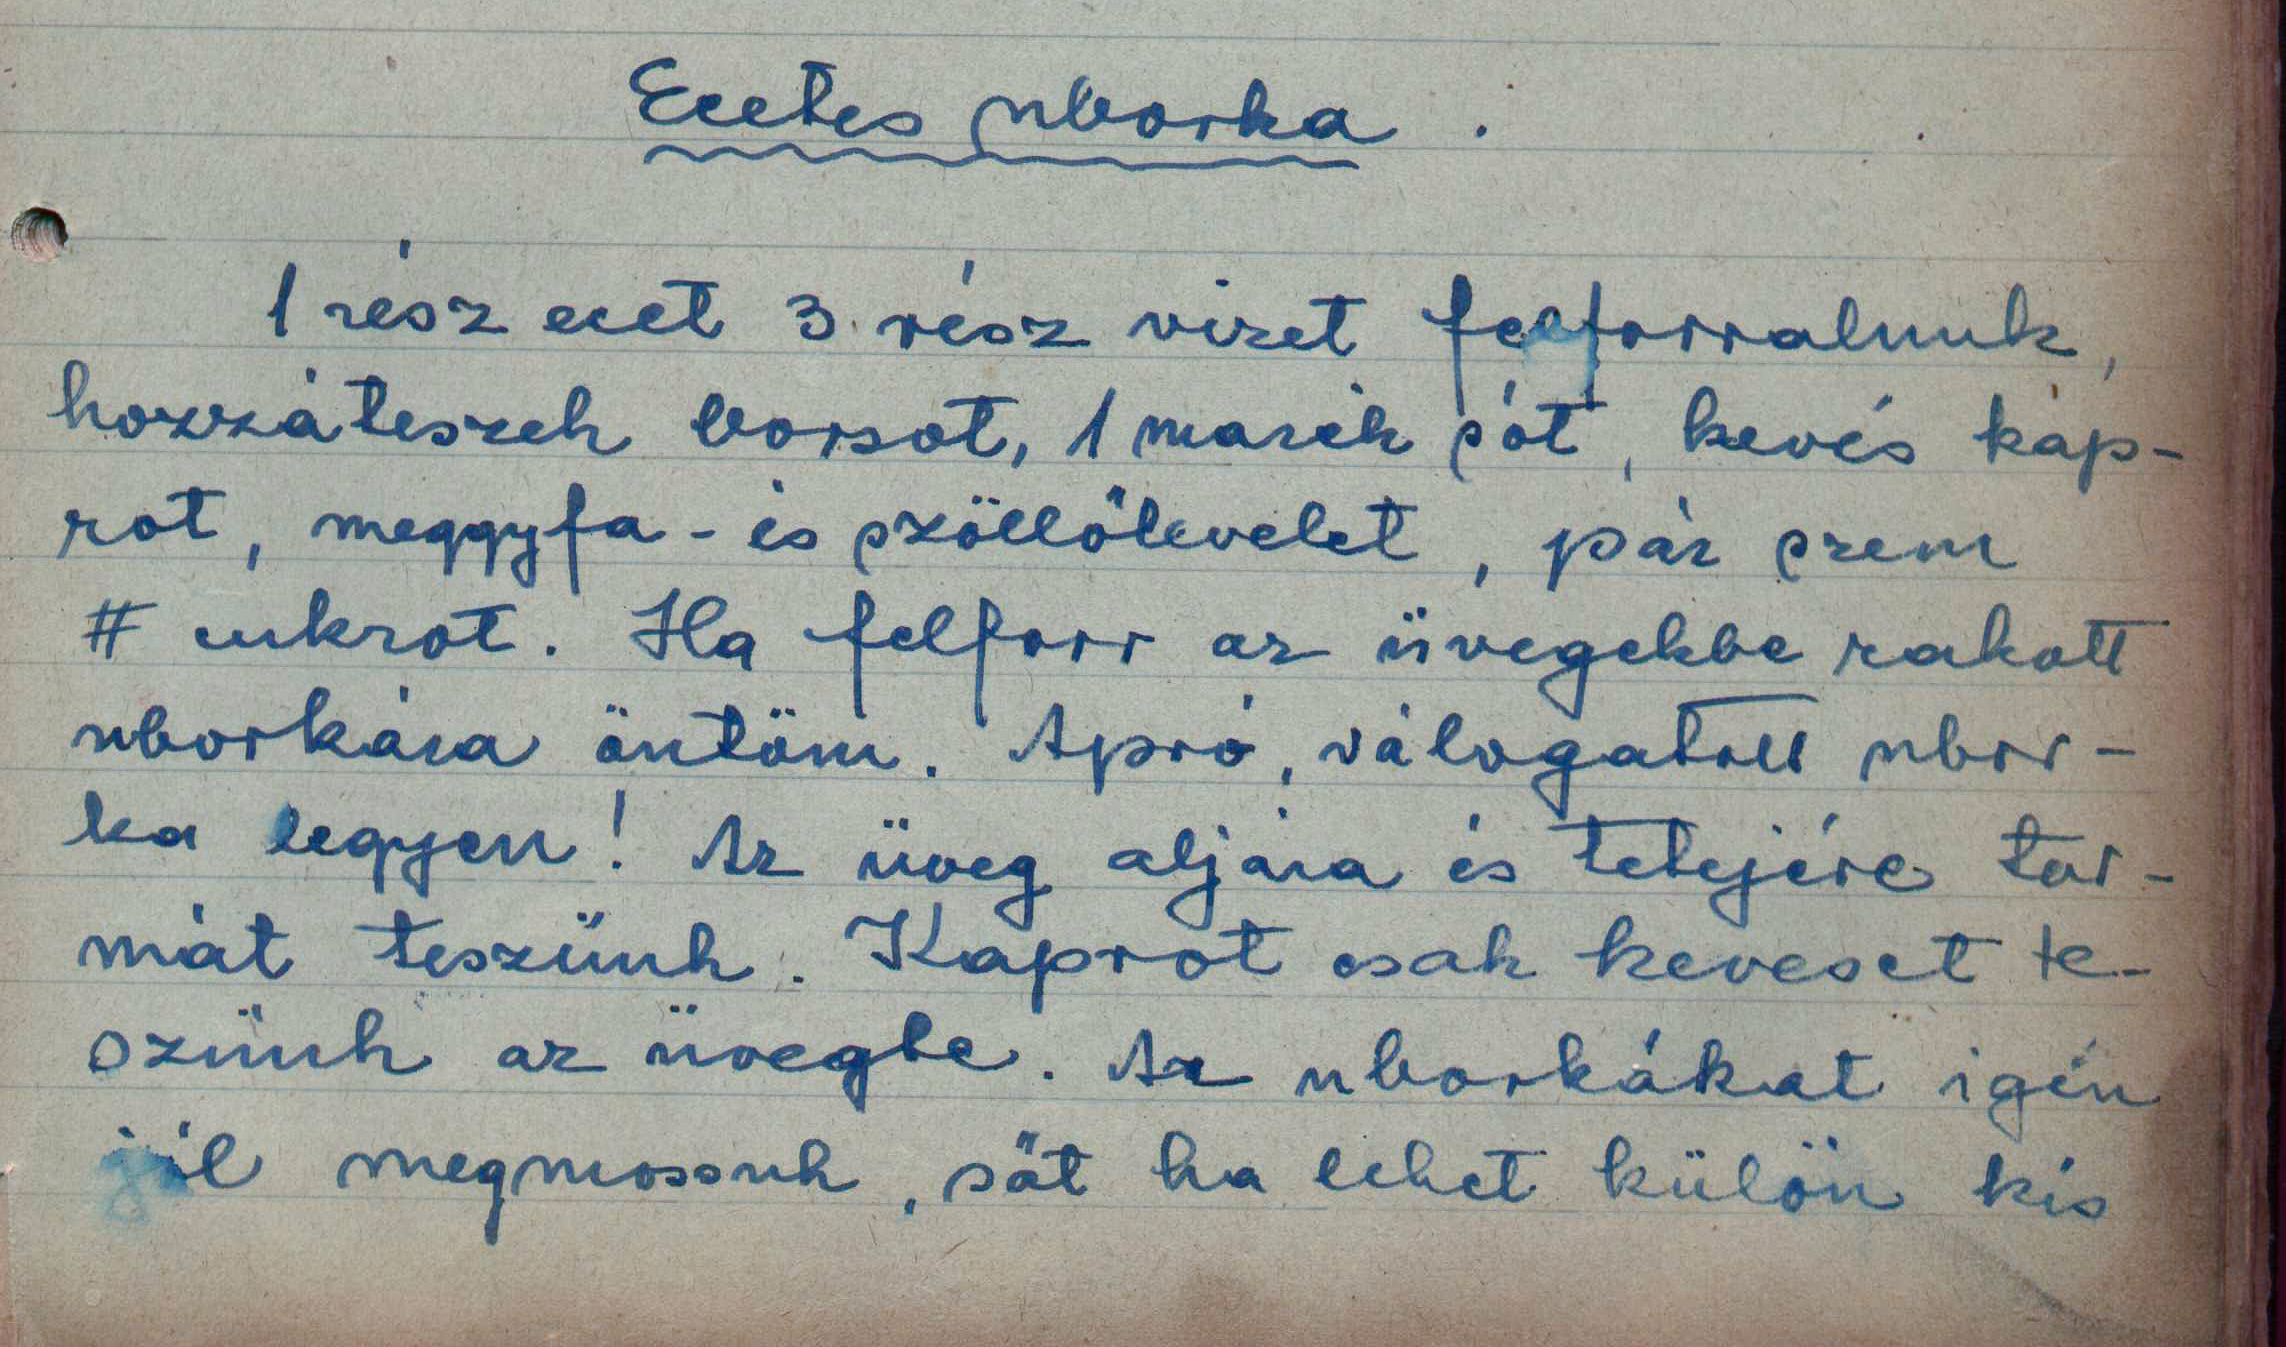 Ecetes uborka.
1 rész ecet 3 rész vizet felforralunk,
hozzáteszek borsot, 1 marék sót, kevés kap-
rot, meggyfa- és szöllőlevelet, pár szem
# cukrot. Ha felforr az üvegekbe rakott
uborkára öntöm. Apró, válogatott ubor-
ka legyen! Az üveg aljára és tetejére tor-
mát teszünk. Kaprot csak keveset te-
szünk az üvegbe. Az uborkákat igen
jól megmossuk, sőt ha lehet külön kis